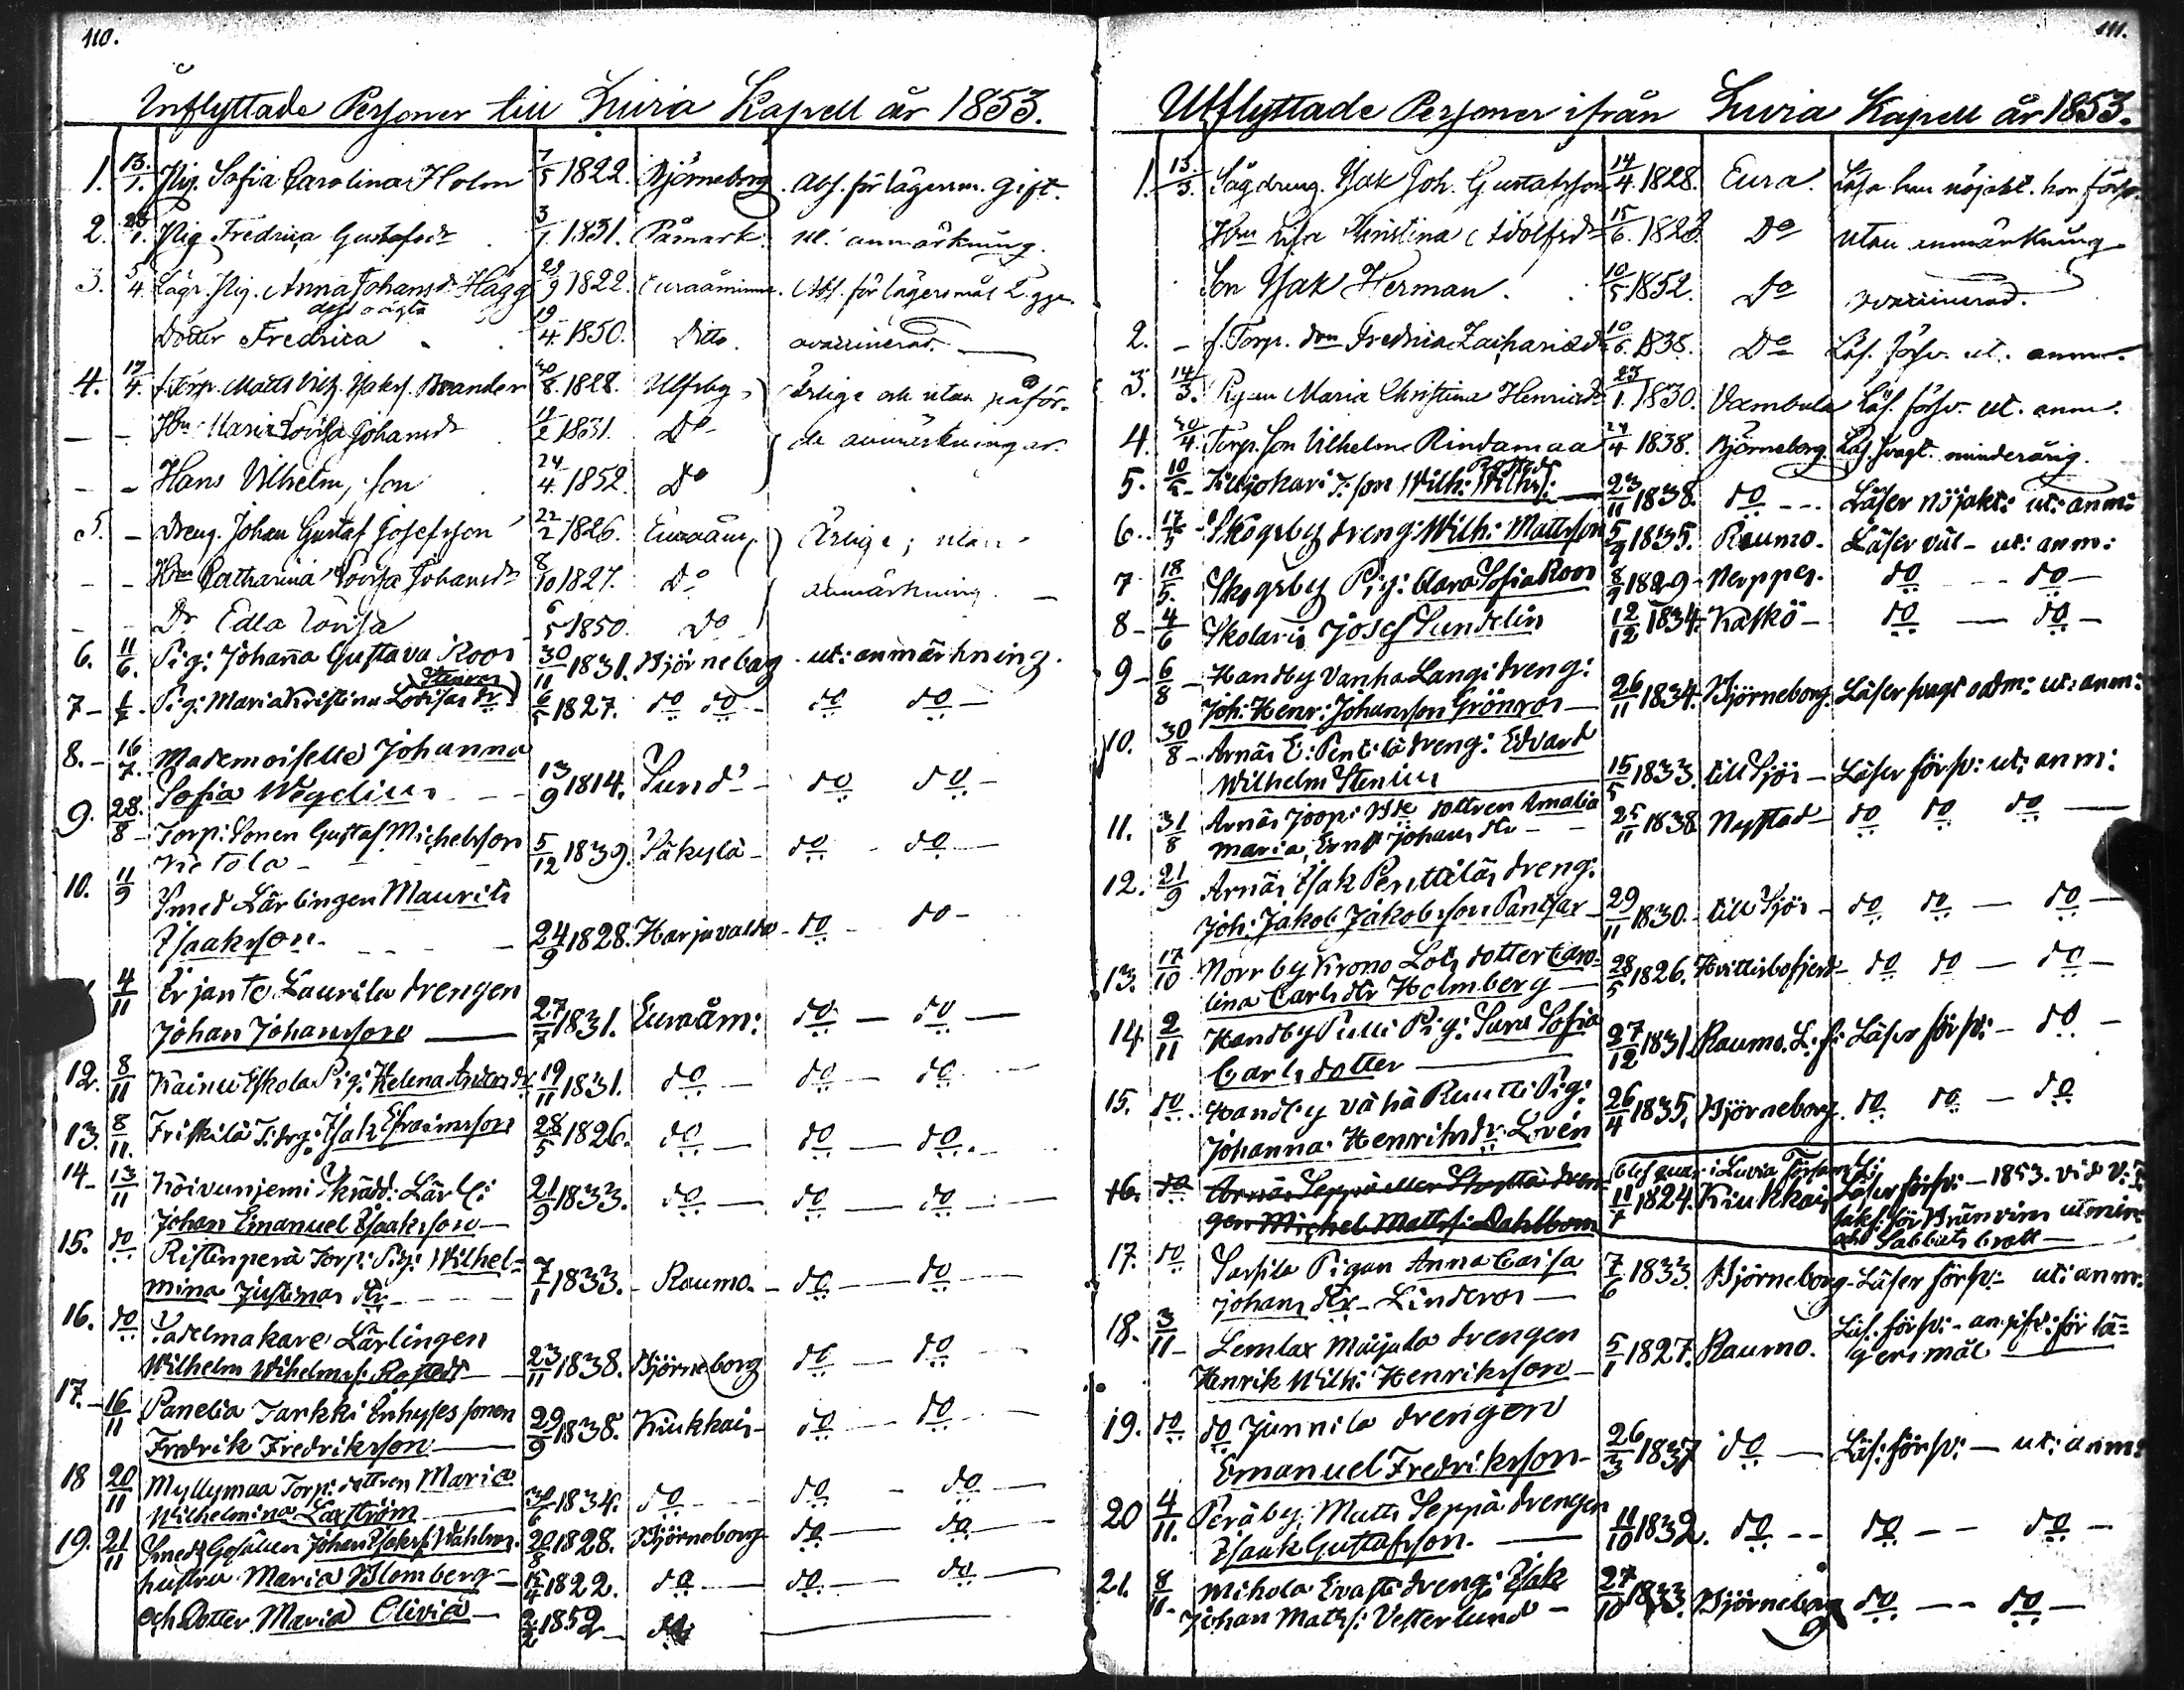 110.
Inflyttade Personer till Luvia Kapell år 1853.
1. 13/1. Pig. Sofia Carolina Holm 7/5 1822. Björneborg. Abs. för lägersm. gift.
2. 23/1. Pig Fredrica Gustafsdr 3/1 1831. Påmark. ut. anmärkning.
3. 5/4. Lägr. Pig. Anna Johansdr Hägg 29/9 1822. Euraåminne. Abs. för lägersmål 2. ggr.
dess oägta
Dotter Fredrica 19/4 1850. Ditto. ovaccinerad.
4. 17/4. f. Torp. Matts Vilh. Isaks. Brander 30/8. 1828. Ulfsby Ärlige och utan påför-
Hun Maria Lovisa Johansdr 12/2 1831. Do de anmärkningar.
Hans Vilhelm, son 24/4. 1852. Do
5. - Dreng. Johan Gustaf Josefsson 22/2 1826. Euraåm. Ärlige; utan
Hun Catharina Lovisa Johansdr 8/10 1827. Do anmärkning.
Dr Edla Lovisa 6/5 1850. Do
6. 11/6. Pig: Johanna Gustava Roos 30/11 1831. Björneborg ut: anmärkning.
Stenros
7 - 1/7 - Pig: Maria Kristina Lovisas dr 6/5 1827. do do - do do -
8. - 16/7. Mademoiselle Johanna
Sofia Wegelius 13/9 1814. Sund - do do -
9. 28/8 - Torp: Sonen Gustaf Michelsson
Vietola - 5/12 1839. Säkylä - do - do -
10. 11/9 Smed Lärlingen Maurits
Isaaksson - 24/9 1828. Harjavalda - do - do -
4/11 Erjante Laurila drengen
Johan Johansson 27/7 1831. Euraåm: do - do -
12. 8/11 Kainu Eskola Pig: Helena Anders dr 19/11 1831. do - do - do -
13. 8/11. Friskilä T: drg: Isak Efraimsson 28/5 1826. do - do - do.
14 - 13/11 Koivuniemi Skrädd: Lärl:
Johan Emanuel Isaaksson - 21/9 1833. do - do - do -
15. do Ristinperä Torp: Pig: Wilhel-
mina Justinas dr - 7/1 1833. - Raumo. - do - do -
16. do Sadelmakare Lärlingen
Wilhelm Wilhelms: Rostedt 23/11 1838. Björneborg do - do -
17. - 16/11 Panelia Tarkki Inhyses sonen
Fredrik Fredriksson 29/9 1838. Kiukkais - do - do -
18 20/11 Myllymaa Torp: dottren Maria
Wilhelmina Laxström 30/6 1834. do - do - do -
19. 21/11 Smeds Gesällen Johan Isaks: Wahlros. 20/8 1828. Björneborg do - do -
hustru Maria Blomberg - 15/4 1822. do - do - do -
och Dotter Maria Olivia - 2/2 1852 - do
111.
Utflyttade Personer ifrån Luvia Kapell år 1853.
1. 13/3. Såg dreng. Isak Joh. Gustafsson 14/4. 1828. Eura. Läsa hun nöjakt. hon försv.
Hun Lisa Kristina Adolfsdr 15/6. 1828. Do utan anmärkning
Son Isak Herman. 10/5 1852. Do ovaccinerad.
2. - f. Torp. dtrn Fredrica Zachariædr 10/6. 1838. Do Läs. försv. ut. anm.
3. 14/3. Pigan Maria Christina Henricsdr 23/1. 1830. Vambula Läs. försv. ut. anm.
4. 20/4. Torp. Son Vilhelm Rindamaa 24/4 1838. Björneborg Läs. svagt. minderårig.
Rostedt
5. 10/5 - Kiljokari T: son Wilh: Wilhs: 23/11 1838. do - - - Läser nöjakt: ut: anm:
6. 17/5 - Skogsby dreng: Wilh: Mattsson 5/9 1835. Raumo. Läser väl - ut: anm:
7 18/5. Skogsby Pig: Clara Sofia Roos 8/9 1829 - Nerppes. do - - do -
8 - 4/6 Skolaris Josef Sundelin 12/12 1834. Kaskö - do - do -
9 - 6/8 - Handby Vanha Langi dreng:
Joh: Henr: Johansson Grönros 26/11 1834. Björneborg. Läser svagt o adm: ut: anm:
10. 30/8 - Arnäs E: Penttilä dreng: Edvard
Wilhelm Stenius 15/5 1833. till Sjös - Läser försv: ut: anm:
11. 31/8 Arnäs Joop: dottren Amalia
Maria, Ernst Johans dtr - 25/11 1838 Nystad - do do do -
12. 21/9 Arnäs Isak Penttiläs dreng:
Joh: Jakob Jakobsson Pantsar - 29/11 1830. - till Sjös - do do - do -
13. 17/10 Norrby Krono Lots dotter Caro-
lina Carls dtr Holmberg 28/5 1826. Hvittisbofjerd - do do - do -
14. 2/11 Handby Pulli Pig: Sara Sofia
Carlsdotter 27/12 1831. Raumo. L: f: Läser försv: - do -
15. do. Handby Vähä Ruutti Pig:
Johanna Henriks dr: Lovén 26/4 1835. Björneborg. do do - do
Blef quar i Luvia Församl:
16. do Arnäs Seppä eller Skyttä dren- 11/7 1824. Kiukkais Läser försv: - 1853. vid V: T:
gen Michel Matts: Dahlbom sakf: för Bränvins utmin:
och Sabbats brott -
17. do Sassila Pigan Anna Caisa
Johans dtr - Linderos - 7/6 1833. Björneborg - Läser försv: ut: anm:
18. 3/11 - Lemlax Maijala drengen
Henrik Wilh: Henriksson 5/1 1827. Raumo. Läs: försv: - ansifv: för lä-
gersmål
19. do do Junnila drengen
Emanuel Fredriksson - 26/3 1837 do - Läs: försv: - ut: anm:
20 4/11. Peräby Matts Seppä drengen
Isaak Gustafsson. 11/10 1832. do - - do - - do -
21. 8/11 - Mihola Evasti dreng: Isak
Johan Mats: Vesterlund - 27/10 1833. Björneborg do - - do -